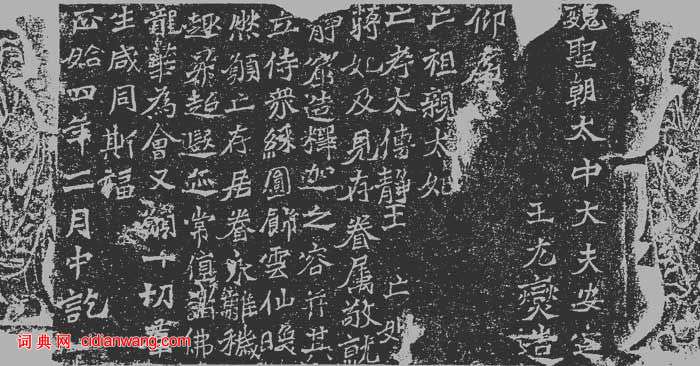 魏聖朝太中大夫安定
王元燮造
仰為
亡祖親太妃
亡考太傅靜王 亡妣
蔣妃及見存眷屬敬就
靜窟造釋迦之容并其
立侍眾綵圓飾雲仙煥
然願亡存居眷永離穢
趣昇超遐迹常值諸佛
龍華為會又願一切羣
生咸同斯福
正始四年二月中訖
词典网 cidianwang.com